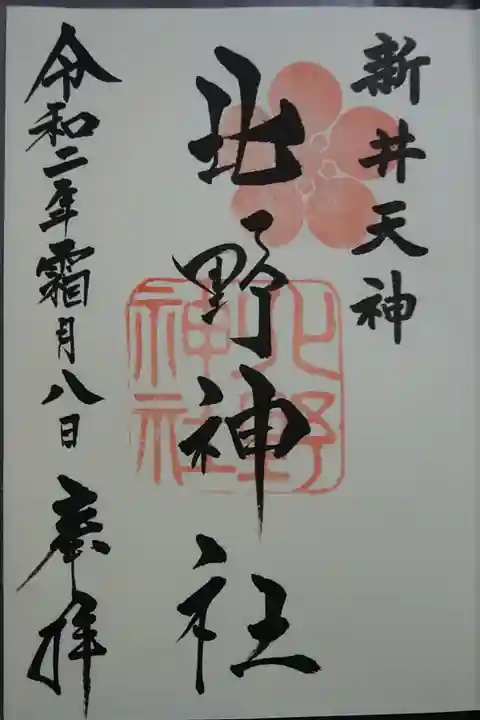 新井天神
北野神社
北野
神社
令和二年霜月八日 奉拝